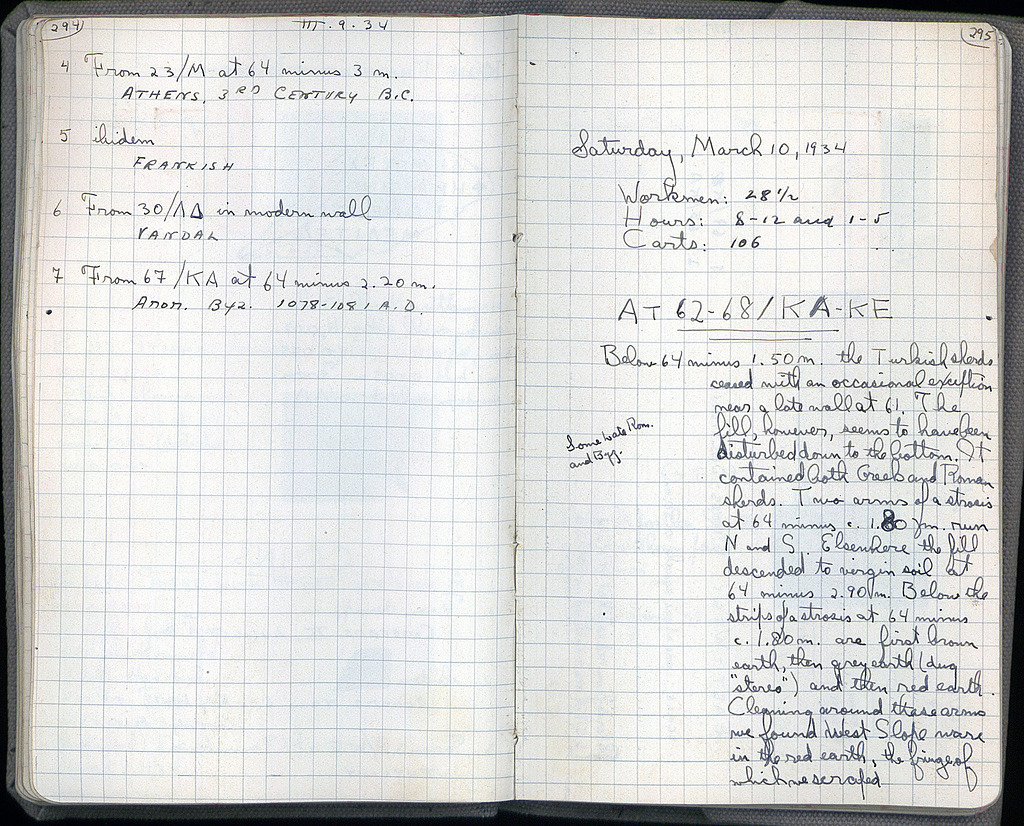 294
III.9.34
4 From 23/M at 64 minus 3 m.
ATHENS, 3RD CENTURY B.C.
5 ibidem
FRANKISH
6 From 30/ΛΔ in modern wall
VANDAL
7 From 67/KA at 64 minus 2.20 m.
Anon. Byz. 1078-1081 A.D.
295
Saturday, March 10, 1934
Workmen: 28 1/2
Hours: 8-12 and 1-5
Carts: 106
AT 62-68/KA-KE
Below 64 minus 1.50 m. the Turkish sherds
ceased with an occasional exception
near a late wall at 61. The
fill, however, seems to have been
disturbed down to the bottom. It
contained both Greek and Roman
sherds. Two arms of a strosis
at 64 minus c. 1.80 m. run
N and S. Elsewhere the fill
descended to virgin soil at
64 minus 2.90 m. Below the
strips of a strosis at 64 minus
c. 1.80 m. are first brown
earth, then grey earth (dug
"stereo") and then red earth.
Cleaning around these arms
we found West Slope ware
in the red earth, the fringe of
which we scraped.
Some late Rom.
and Byz.